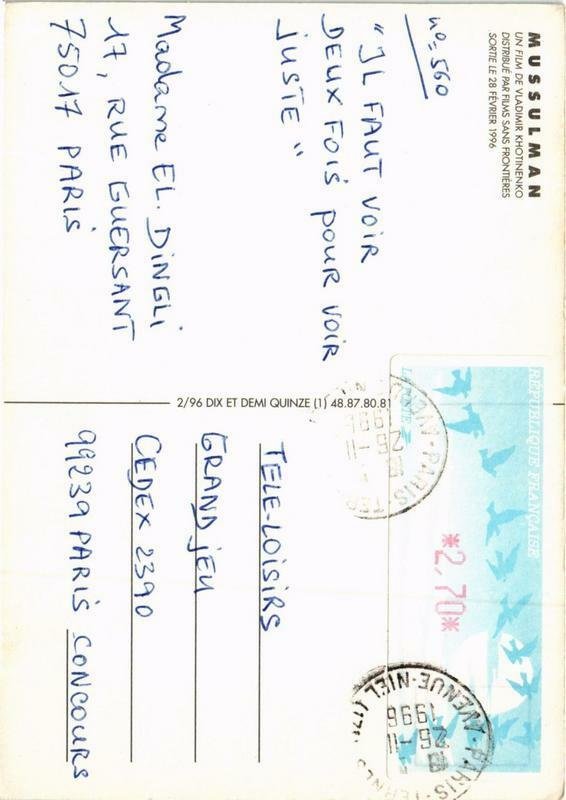 MUSSULMAN
UN FILM DE VLADIMIR KHOTINENKO
DISTRIBUÉ PAR FILMS SANS FRONTIÈRES
SORTIE LE 28 FÉVRIER 1996
n°=560
"IL FAUT VOIR
DEUX FOIS pour VOIR
JUSTE"
Madame EL. DINGLI
17, RUE GUERSANT
75017 PARIS
2/96 DIX ET DEMI QUINZE (1) 48.87.80.81
RÉPUBLIQUE FRANÇAISE
LA POSTE
*2,70*
PARIS-TER
26-11
1996
PARIS-TERNES
AVENUE-NIEL (17
26-11
1996
TELE-LOISIRS
GRAND JEU
CEDEX 2390
99239 PARIS CONCOURS